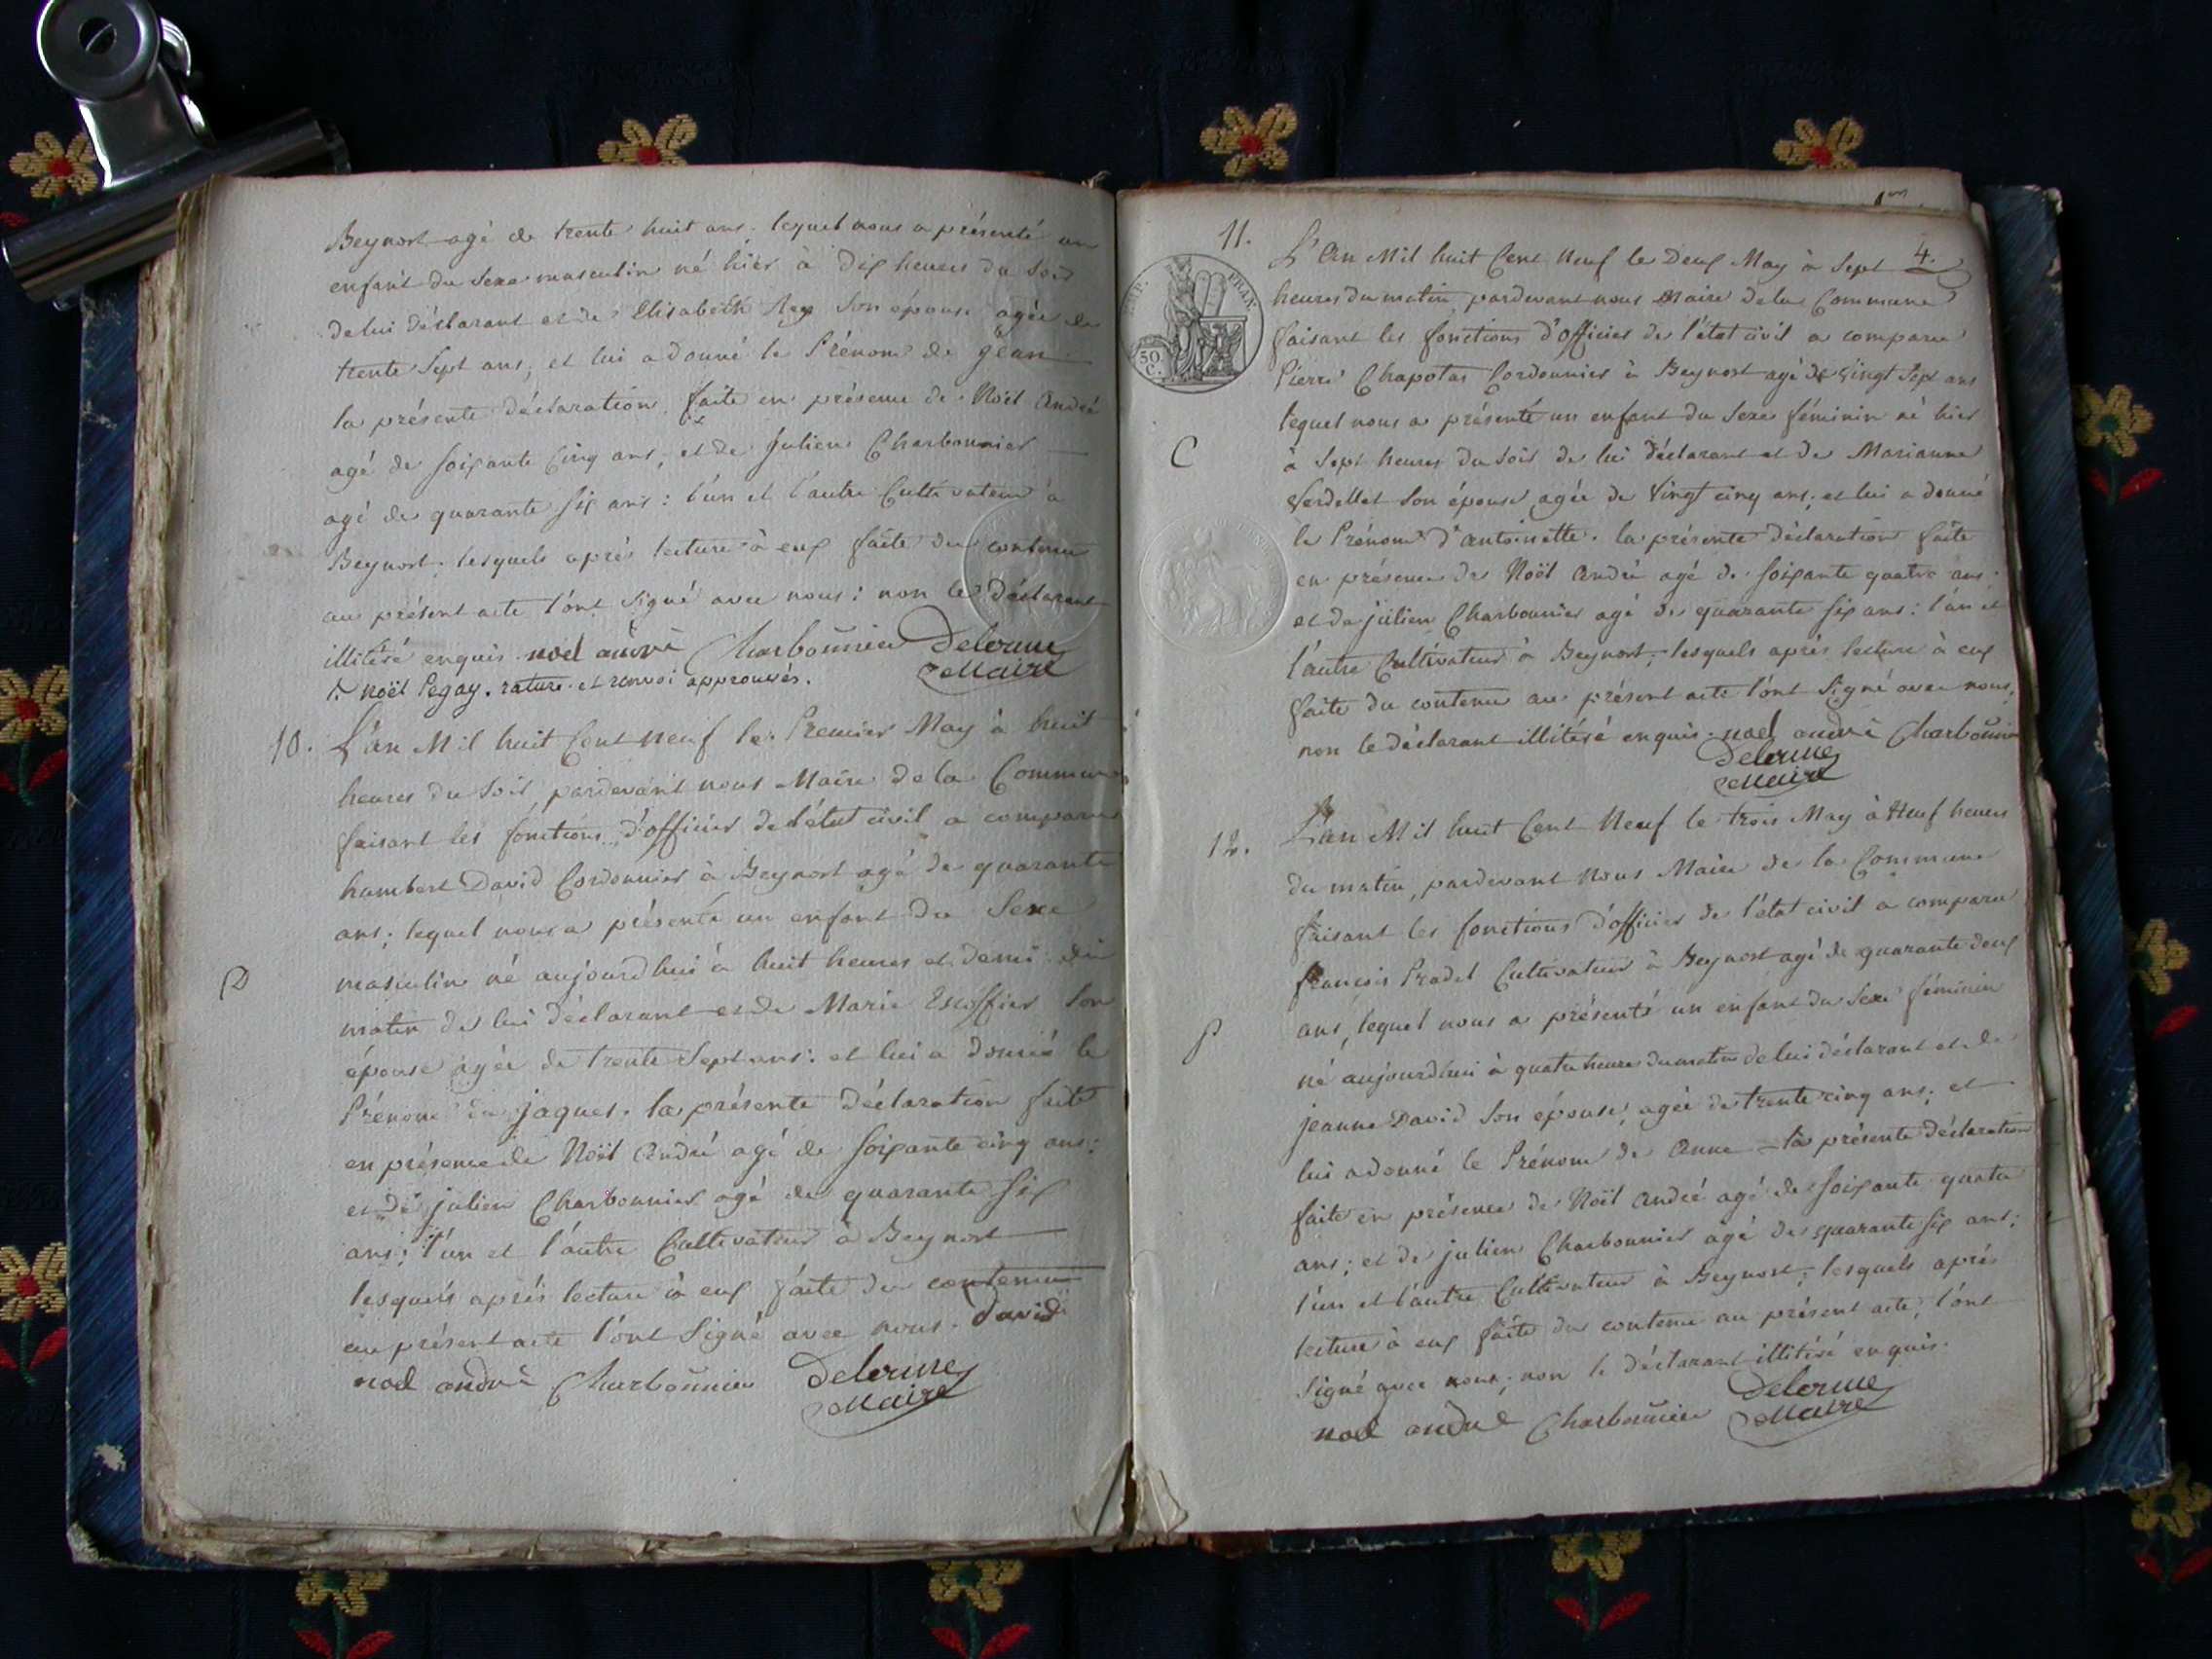 Beynost agé de trente huit ans. lequel nous a présenté un
enfant du Sexe masculin né hier à Dix heures du Soir
de lui déclarant et de Elisabeth Rey Son épouse agée de
trente Sept ans, et lui a donné le Prénom de jean
la présente déclaration faite en présence de Noël André
agé de soixante Cinq ans, et de Julien Charbonnier
agé de quarante six ans : l'un et l'autre Cultivateur à
Beynost. lesquels après lecture à eux faite du contenu
au présent acte l'ont Signé avec nous : non le déclarant
illitéré enquis. noel andré Charbonnier Delorme
Maire
noël Pegay. rature et renvoi approuvés.
10. L'an Mil huit Cent neuf le Premier May à huit
heures du Soir, pardevant nous Maire de la Commune
faisant les fonctions d'officier de l'état civil a comparu
humbert David Cordonnier à Beynost agé de quarante
ans; lequel nous a présenté un enfant du Sexe
D
masculin né aujourdhui à huit heures et demi du
matin de lui déclarant et de Marie Escoffier Son
épouse agée de trente Sept ans : et lui a donné le
Prénom de jaques. la présente déclaration faite
en présence de Noël André agé de soixante cinq ans :
et de julien Charbonnier agé de quarante six
ans; l'un et l'autre Cultivateur à Beynost
lesquels après lecture à eux faite du contenu
au présent acte l'ont Signé avec nous. David
noel andré Charbonnier Delorme
Maire
4.
11. L'An Mil huit Cent Neuf le Deux May à Sept
heures du matin pardevant nous Maire de la Commune
FRAN.
50
C.
faisant les fonctions d'officier de l'état civil a comparu
Pierre Chapotas Cordonnier à Beynost agé de Vingt Sept ans
lequel nous a présenté un enfant du Sexe féminin né hier
C
à Sept heures du Soir de lui déclarant et de Marianne
Verdellet Son épouse agée de Vingt cinq ans; et lui a donné
le Prénom d'Antoinette. la présente déclaration faite
en présence de Noël André agé de soixante quatre ans.
et de julien Charbonnier agé de quarante six ans : l'un et
l'autre Cultivateur à Beynost; lesquels après lecture à eux
faite du contenu au présent acte l'ont Signé avec nous,
non le déclarant illitéré enquis. noel andré Charbonnier
Delorme
Maire
12. L'an Mil huit Cent Neuf le trois May à Neuf heures
du matin, pardevant Nous Maire de la Commune
faisant les fonctions d'officier de l'état civil a comparu
françois Pradel Cultivateur à Beynost agé de quarante deux
ans, lequel nous a présenté un enfant du Sexe féminin
P
né aujourdhui à quatre heures du matin de lui déclarant et de
jeanne David Son épouse, agée de trente cinq ans; et
lui a donné le Prénom de Anne la présente déclaration
faite en présence de Noël André agé de soixante quatre
ans; et de julien Charbonnier agé de quarante six ans;
l'un et l'autre Cultivateur à Beynost; lesquels après
lecture à eux faite du contenu au présent acte, l'ont
Signé avec nous; non le déclarant illitéré enquis.
noel andré Charbonnier Delorme
Maire